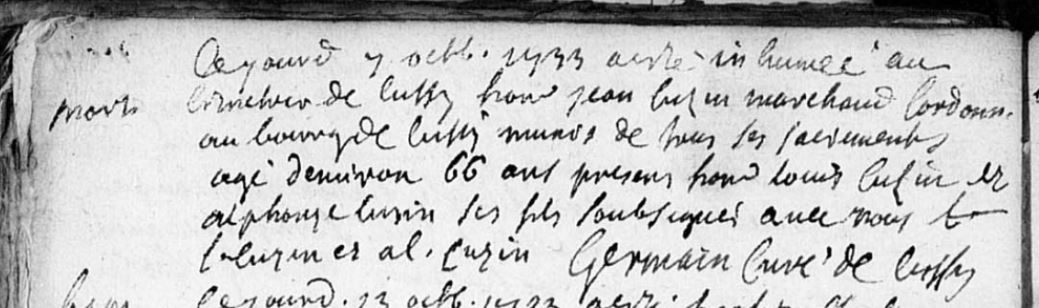 Cejourd 7 octb. 1733 aeste inhumée au
mort cimetiere de Cussy hond jean Cuzin marchand Cordonn.
au bourg de Cussy munis de tous ses sacrements
agé denviron 66 ans presens hond Louis Cuzin et
alphonze Cuzin ses fils soubsignés avec nous
L. Cuzin et al. Cuzin Germain Curé de Cussy
cejourd. 13 octb. 1733 aesté